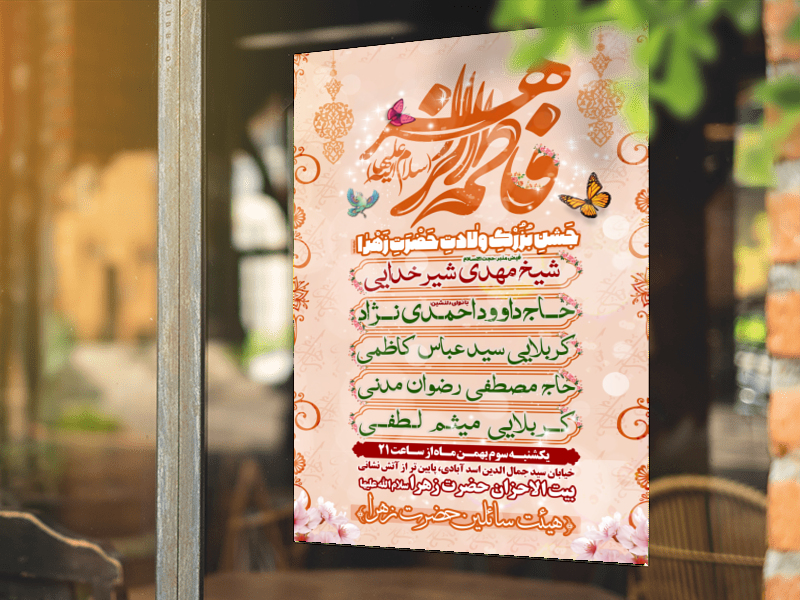 فاطمة الزهرا
(سلام الله علیها)
جشن بزرگ ولادت حضرت زهرا
فیض منبر: حجت الاسلام
شیخ مهدی شیرخدایی
بانوای دلنشین
حاج داوود احمدی نژاد
کربلایی سید عباس کاظمی
حاج مصطفی رضوان مدنی
کربلایی میثم لطفی
یکشنبه سوم بهمن ماه از ساعت ۲۱
خیابان سید جمال الدین اسد آبادی، پایین تر از آتش نشانی
بیت الاحزان حضرت زهرا سلام الله علیها
هیئت سائلین حضرت زهرا